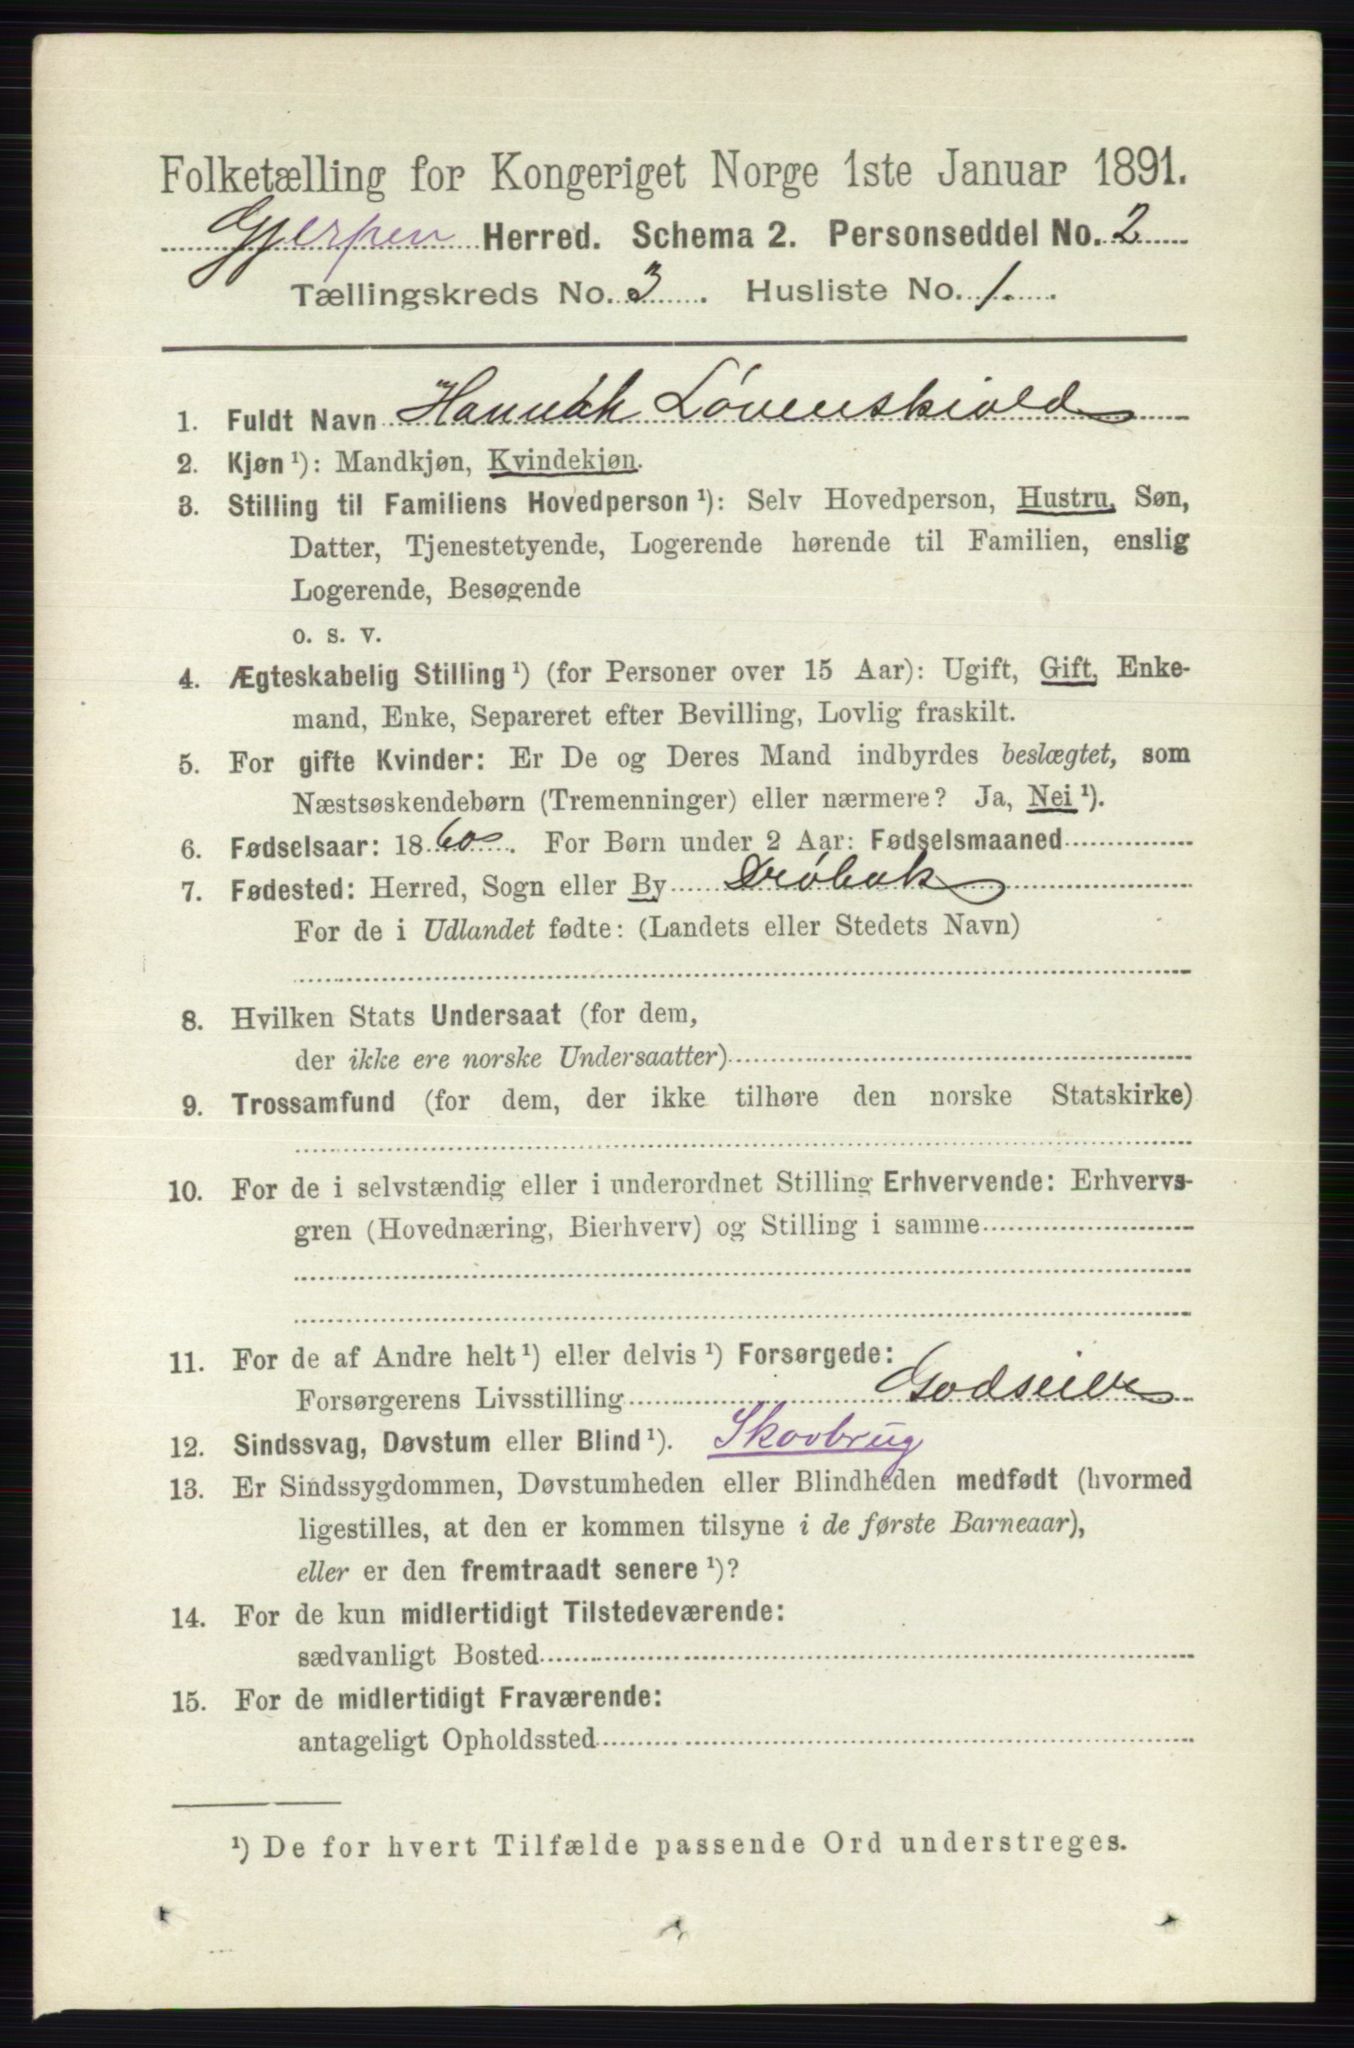 Folketælling for Kongeriget Norge 1ste Januar 1891.
Gjerpen Herred. Schema 2. Personseddel No. 2
Tællingskreds No. 3. Husliste No. 1.
1. Fuldt Navn Hannah Løvenskiold
2. Kjøn ¹): Mandkjøn, Kvindekjøn.
3. Stilling til Familiens Hovedperson ¹): Selv Hovedperson, Hustru, Søn,
Datter, Tjenestetyende, Logerende hørende til Familien, enslig
Logerende, Besøgende
o. s. v.
4. Ægteskabelig Stilling ¹) (for Personer over 15 Aar): Ugift, Gift, Enke-
mand, Enke, Separeret efter Bevilling, Lovlig fraskilt.
5. For gifte Kvinder: Er De og Deres Mand indbyrdes beslægtet, som
Næstsøskendebørn (Tremenninger) eller nærmere? Ja, Nei ¹).
6. Fødselsaar: 1860. For Børn under 2 Aar: Fødselsmaaned
7. Fødested: Herred, Sogn eller By Drøbak
For de i Udlandet fødte: (Landets eller Stedets Navn)
8. Hvilken Stats Undersaat (for dem,
der ikke ere norske Undersaatter)
9. Trossamfund (for dem, der ikke tilhøre den norske Statskirke)
10. For de i selvstændig eller i underordnet Stilling Erhvervende: Erhvervs-
gren (Hovednæring, Bierhverv) og Stilling i samme
11. For de af Andre helt ¹) eller delvis ¹) Forsørgede:
Forsørgerens Livsstilling Godseier
12. Sindssvag, Døvstum eller Blind ¹). Skovbrug
13. Er Sindssygdommen, Døvstumheden eller Blindheden medfødt (hvormed
ligestilles, at den er kommen tilsyne i de første Barneaar),
eller er den fremtraadt senere ¹)?
14. For de kun midlertidigt Tilstedeværende:
sædvanligt Bosted
15. For de midlertidigt Fraværende:
antageligt Opholdssted
¹) De for hvert Tilfælde passende Ord understreges.